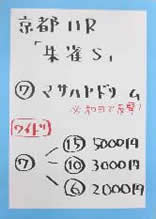 京都11R
「朱雀S」
⑦マサハヤドリーム
ワイド
⑦
⑮5000円
⑩3000円
⑥2000円